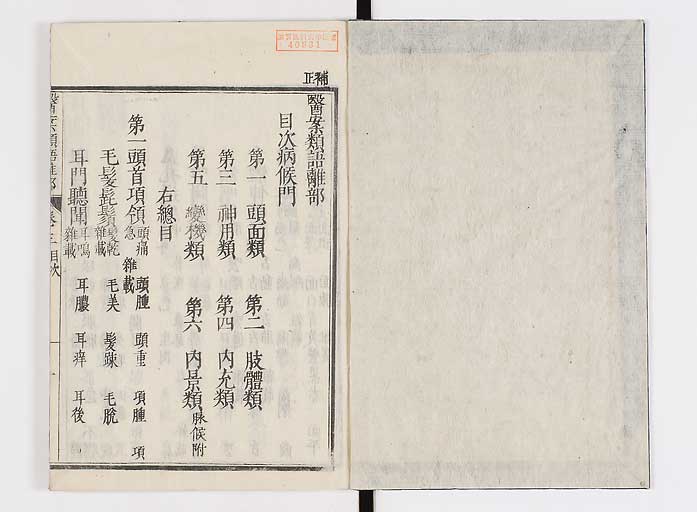 補正
醫案類語離部
目次病候門
第一 頭面類 第二 肢體類
第三 神用類 第四 內充類
第五 變機類 第六 內景類 脉候附
右總目
第一頭首項領 頭痛 頭腫 頭重 項腫 項
急 雜載
毛髮髭鬚 髮乾 毛美 髮踈 毛脫
雜載
耳門聽聞 耳鳴 耳膿 耳痒 耳後
雜載
40931